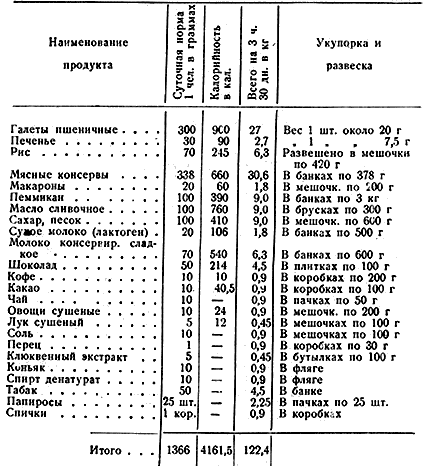 Наименование продукта | Суточная норма 1 чел. в граммах | Калорийность в кал. | Всего на 3 ч. 30 дн. в кг | Укупорка и развеска
Галеты пшеничные . . . . | 300 | 900 | 27 | Вес 1 шт. около 20 г
Печенье . . . . . . . . | 30 | 90 | 2,7 | „ 1 „ „ 7,5 г
Рис . . . . . . . . . . | 70 | 245 | 6,3 | Развешено в мешочки
по 420 г
Мясные консервы . . . . | 338 | 660 | 30,6 | В банках по 378 г
Макароны . . . . . . . | 20 | 60 | 1,8 | В мешочк. по 200 г
Пеммикан . . . . . . . | 100 | 390 | 9,0 | В банках по 3 кг
Масло сливочное . . . . | 100 | 760 | 9,0 | В брусках по 300 г
Сахар, песок . . . . . . | 100 | 410 | 9,0 | В мешочк. по 600 г
Сухое молоко (лактоген) | 20 | 106 | 1,8 | В банках по 500 г
Молоко консервир. слад-
кое . . . . . . . . . | 70 | 540 | 6,3 | В банках по 600 г
Шоколад . . . . . . . . | 50 | 214 | 4,5 | В плитках по 100 г
Кофе . . . . . . . . . | 10 | 10 | 0,9 | В коробках по 200 г
Какао . . . . . . . . . | 10 | 40,5 | 0,9 | В коробках по 100 г
Чай . . . . . . . . . . | 10 | — | 0,9 | В пачках по 50 г
Овощи сушеные . . . . . | 10 | 24 | 0,9 | В мешочк. по 200 г
Лук сушеный . . . . . . | 5 | 12 | 0,45 | В мешочках по 100 г
Соль . . . . . . . . . | 10 | — | 0,9 | В мешочках по 100 г
Перец . . . . . . . . . | 1 | — | 0,9 | В коробках по 30 г
Клюквенный экстракт . . | 5 | — | 0,45 | В бутылках по 100 г
Коньяк . . . . . . . . | 10 | — | 0,9 | В фляге
Спирт денатурат . . . . | 10 | — | 0,9 | В фляге
Табак . . . . . . . . . | 50 | — | 4,5 | В банке
Папиросы . . . . . . . | 25 шт. | — | 2,25 | В пачках по 25 шт.
Спички . . . . . . . . | 1 кор. | — | 0,9 | В коробках
Итого . . . | 1366 | 4161,5 | 122,4